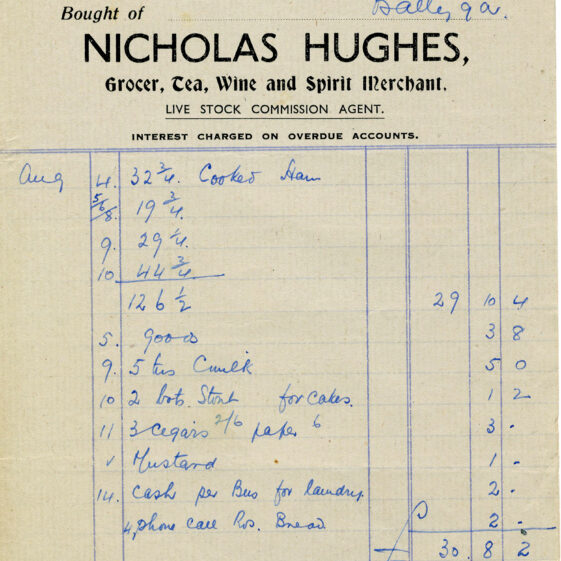 Bought of
NICHOLAS HUGHES,
Grocer, Tea, Wine and Spirit Merchant.
LIVE STOCK COMMISSION AGENT.
INTEREST CHARGED ON OVERDUE ACCOUNTS.
Aug 4. 32 3/4. Cooked Ham
5/6/8. 19 3/4.
9. 29 1/4.
10 44 3/4
126 1/2 29 10 4
5. goods 3 8
9. 5 tns Cmilk 5 0
10 2 bots. Stout for cakes. 1 2
11 3 cegars 2/6 paper 6 3 -
Mustard 1 -
14. Cash per Bus for laundry 2 -
phone call Ros. Bread 2 -
30. 8 2